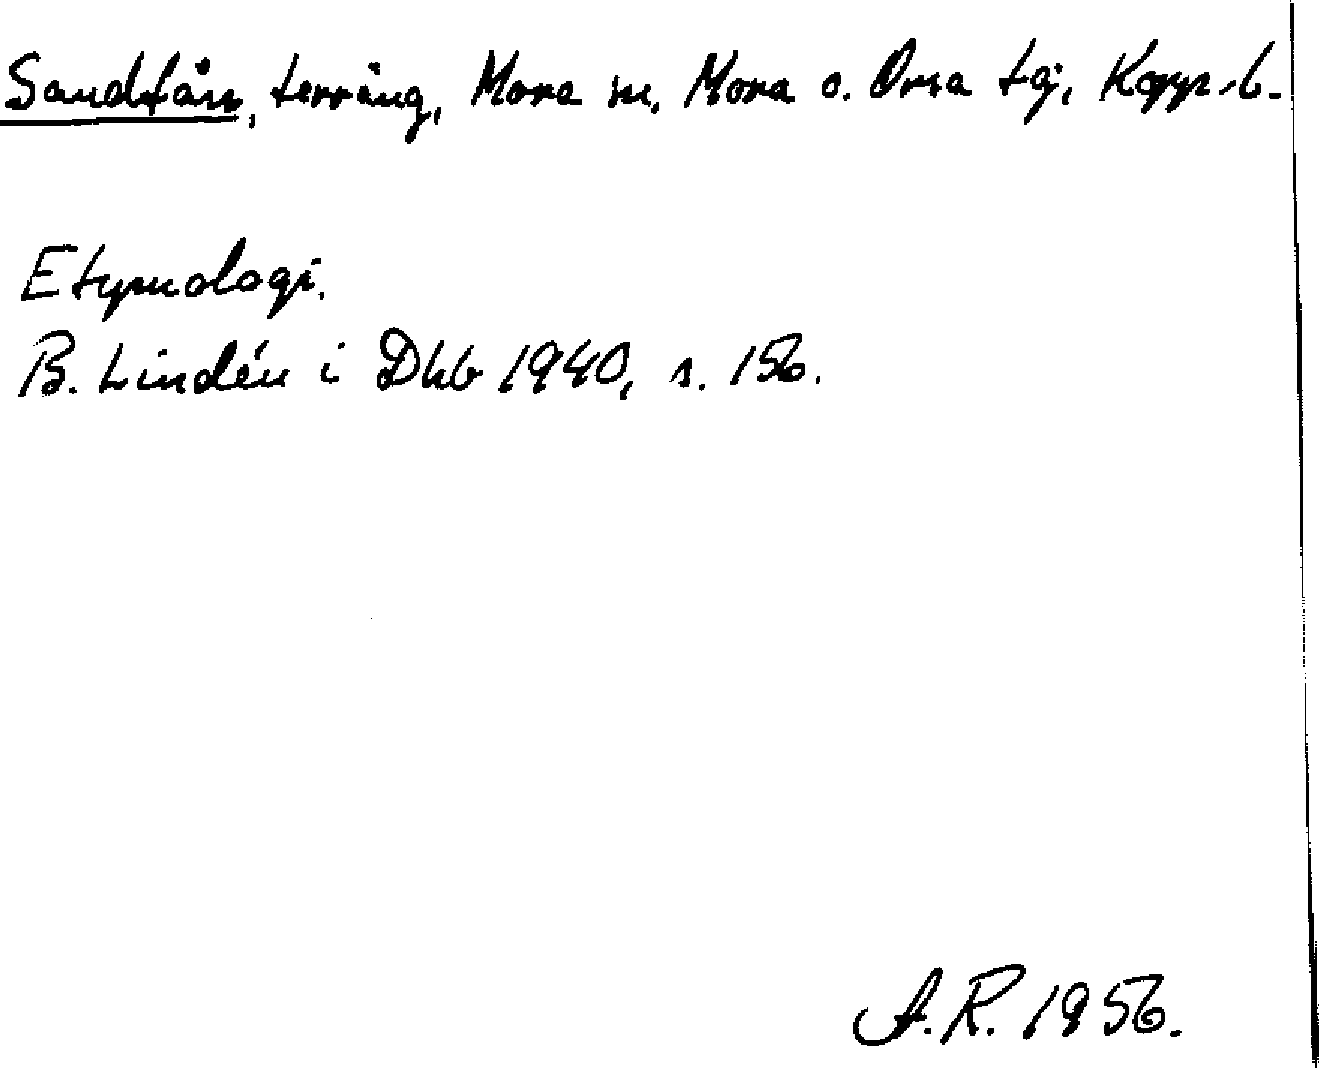 Sandtån, terräng, Mora sn, Mora o. Orsa tg, Kopp. b.
Etymologi.
B. Lindén i Dhb 1940, s. 156.
A.R. 1956.